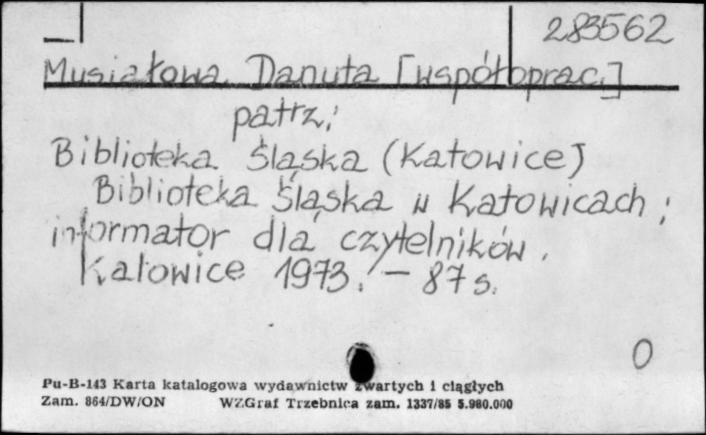 283562
Musiałowa Danuta [współoprac.]
patrz:
Biblioteka Śląska (Katowice)
Biblioteka Śląska w Katowicach :
informator dla czytelników.
Katowice 1973. – 87 s.
0
Pu-B-143 Karta katalogowa wydawnictw zwartych i ciągłych
Zam. 864/DW/ON WZGraf Trzebnica zam. 1337/85 5.980.000